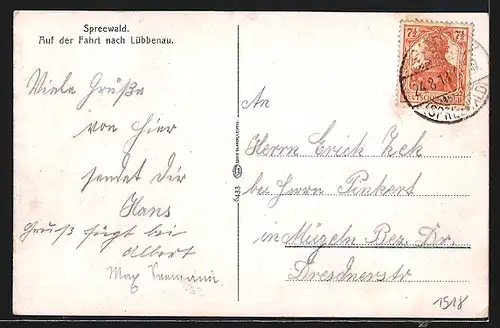 Spreewald.
Auf der Fahrt nach Lübbenau.
Viele Grüße
von hier
sendet dir
Hans
Gruß fügt bei
Albert
Max
An
Herrn Erich Zek
bei Herrn Pinkert
in Mügeln Bez. Dr.
Dresdnerstr
1518
6433
7½ 7½
24.8.17
(SPREEWALD)